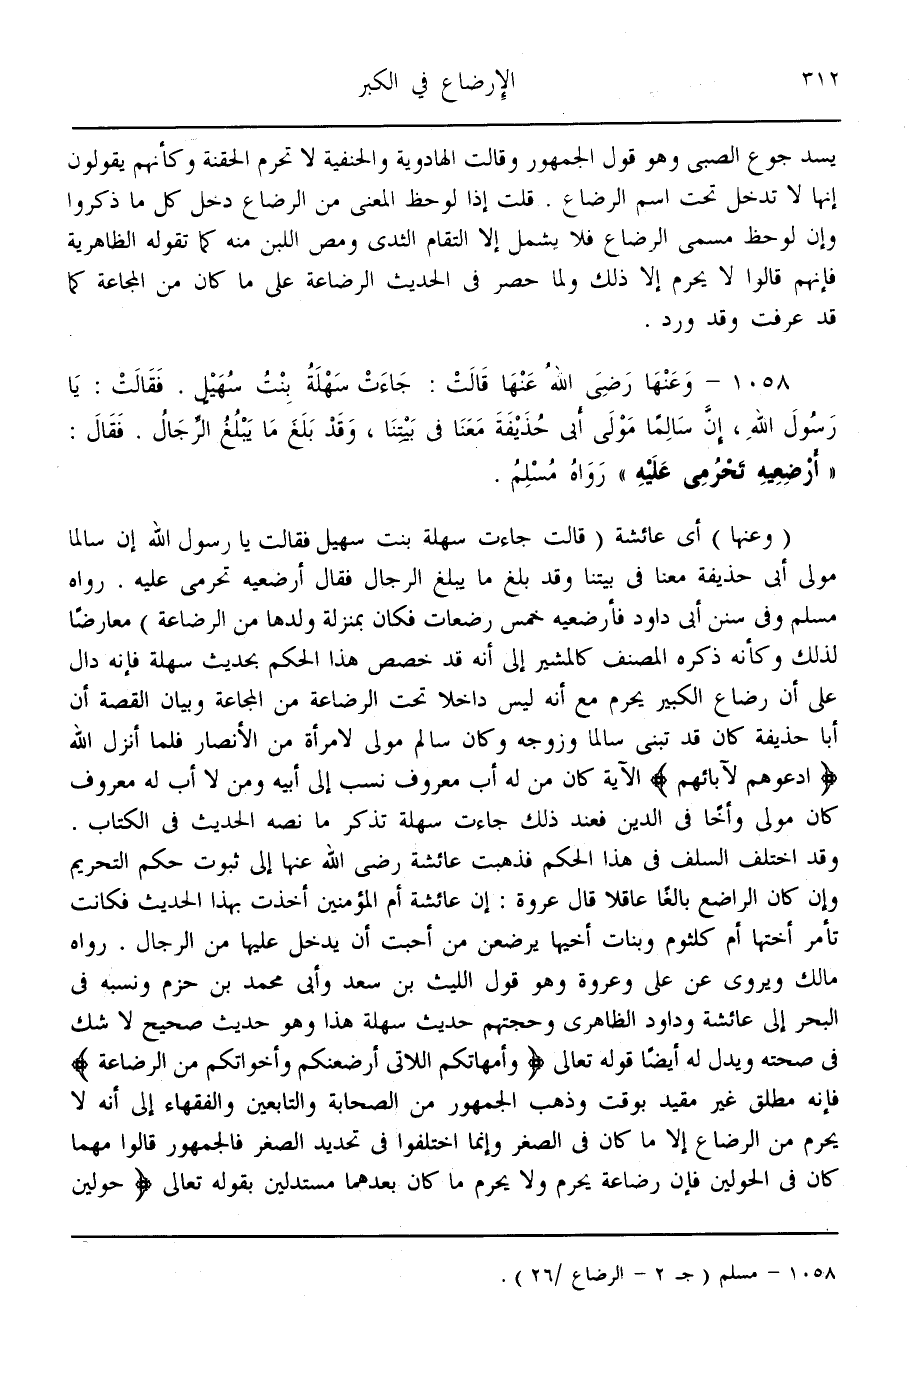 ٣١٢ الإرضاع في الكبر
يسد جوع الصبى وهو قول الجمهور وقالت الهادوية والحنفية لا تحرم الحقنة وكأنهم يقولون
إنها لا تدخل تحت اسم الرضاع . قلت إذا لوحظ المعنى من الرضاع دخل كل ما ذكروا
وإن لوحظ مسمى الرضاع فلا يشمل إلا التقام الثدى ومص اللبن منه كما تقوله الظاهرية
فإنهم قالوا لا يحرم إلا ذلك ولما حصر فى الحديث الرضاعة على ما كان من المجاعة كما
قد عرفت وقد ورد .
١٠٥٨ – وَعَنْهَا رَضِىَ اللهُ عَنْهَا قَالَتْ : جَاءَتْ سَهْلَةُ بِنْتُ سُهَيْلٍ . فَقَالَتْ : يَا
رَسُولَ اللهِ ، إِنَّ سَالِمًا مَوْلَى أَبِى حُذَيْفَةَ مَعَنَا فِى بَيْتِنَا ، وَقَدْ بَلَغَ مَا يَبْلُغُ الرِّجَالُ . فَقَالَ :
« أَرْضِعِيهِ تَحْرُمِى عَلَيْهِ » رَوَاهُ مُسْلِمٌ .
( وعنها ) أى عائشة ( قالت جاءت سهلة بنت سهيل فقالت يا رسول الله إن سالما
مولى أبى حذيفة معنا فى بيتنا وقد بلغ ما يبلغ الرجال فقال أرضعيه تحرمى عليه . رواه
مسلم وفى سنن أبى داود فأرضعيه خمس رضعات فكان بمنزلة ولدها من الرضاعة ) معارضًا
لذلك وكأنه ذكره المصنف كالمشير إلى أنه قد خصص هذا الحكم بحديث سهلة فإنه دال
على أن رضاع الكبير يحرم مع أنه ليس داخلا تحت الرضاعة من المجاعة وبيان القصة أن
أبا حذيفة كان قد تبنى سالما وزوجه وكان سالم مولى لامرأة من الأنصار فلما أنزل الله
﴿ ادعوهم لآبائهم ﴾ الآية كان من له أب معروف نسب إلى أبيه ومن لا أب له معروف
كان مولى وأخًا فى الدين فعند ذلك جاءت سهلة تذكر ما نصه الحديث فى الكتاب .
وقد اختلف السلف فى هذا الحكم فذهبت عائشة رضى الله عنها إلى ثبوت حكم التحريم
وإن كان الراضع بالغًا عاقلا قال عروة : إن عائشة أم المؤمنين أخذت بهذا الحديث فكانت
تأمر أختها أم كلثوم وبنات أخيها يرضعن من أحبت أن يدخل عليها من الرجال . رواه
مالك ويروى عن على وعروة وهو قول الليث بن سعد وأبى محمد بن حزم ونسبه فى
البحر إلى عائشة وداود الظاهرى وحجتهم حديث سهلة هذا وهو حديث صحيح لا شك
فى صحته ويدل له أيضًا قوله تعالى ﴿ وأمهاتكم اللاتى أرضعنكم وأخواتكم من الرضاعة ﴾
فإنه مطلق غير مقيد بوقت وذهب الجمهور من الصحابة والتابعين والفقهاء إلى أنه لا
يحرم من الرضاع إلا ما كان فى الصغر وإنما اختلفوا فى تحديد الصغر فالجمهور قالوا مهما
كان فى الحولين فإن رضاعة يحرم ولا يحرم ما كان بعدهما مستدلين بقوله تعالى ﴿ حولين
١٠٥٨ – مسلم ( جـ ٢ – الرضاع /٢٦ ) .